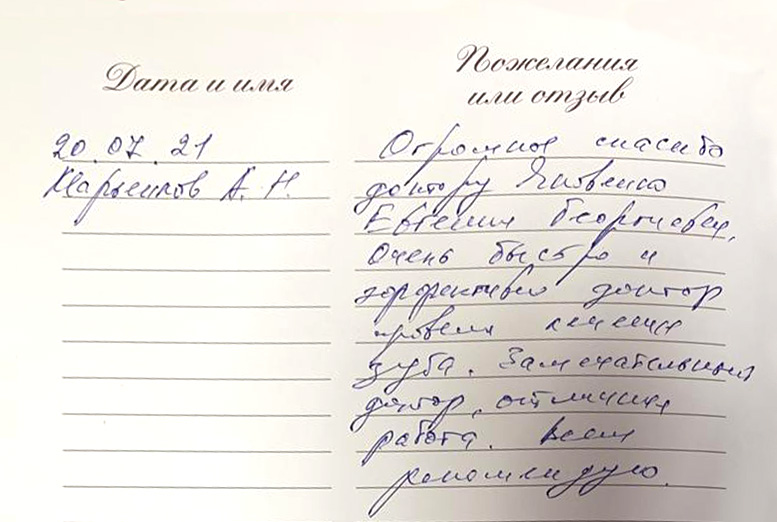 Дата и имя
Пожелания
или отзыв
20.07.21
Марьенков А. Н.
Огромное спасибо
доктору Яковенко
Евгении Георгиевне,
Очень быстро и
эффективно доктор
провела лечение
зуба. Замечательный
доктор, отличная
работа. Всем
рекомендую.